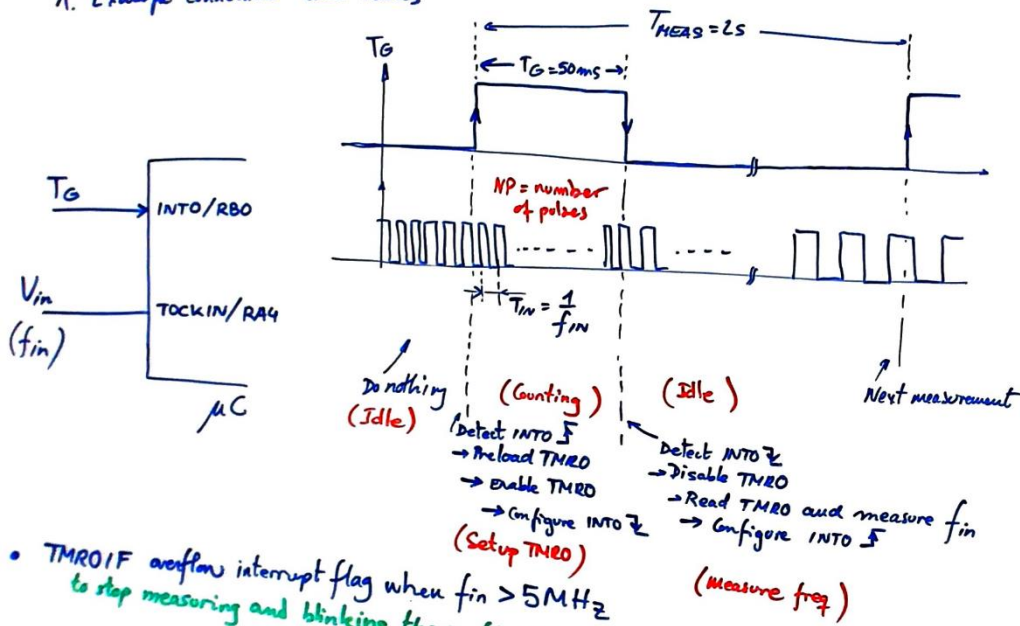 TMEAS = 2s
TG
TG = 50ms
TG
INT0/RB0
NP = number
of pulses
Vin
(fin)
T0CKIN/RA4
TIN = 1/fIN
µC
Do nothing
(Idle)
(Counting)
(Idle)
Next measurement
Detect INT0
→ Preload TMR0
→ Enable TMR0
→ Configure INT0
(Setup TMR0)
Detect INT0
→ Disable TMR0
→ Read TMR0 and measure fin
→ Configure INT0
(Measure freq)
• TMR0IF overflow interrupt flag when fin > 5MHz
to stop measuring and blinking the